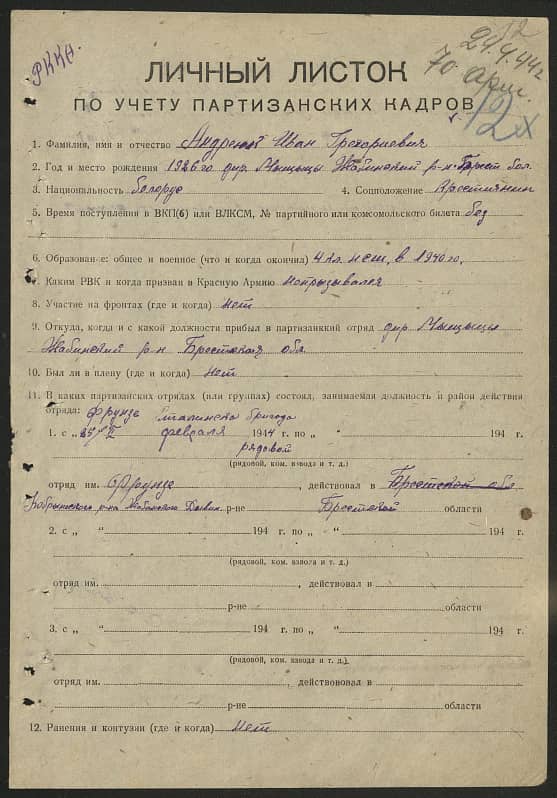 РККА.
12
24.4.44г
70 арм.
12х
ЛИЧНЫЙ ЛИСТОК
ПО УЧЕТУ ПАРТИЗАНСКИХ КАДРОВ
1. Фамилия, имя и отчество Иван Грегориевич
2. Год и место рождения 1926го дир. Мыщыцы Жабинский р-н Брест обл.
3. Национальность белорус 4. Соцположение Крестиянин
5. Время поступления в ВКП(б) или ВЛКСМ, № партийного или комсомольского билета без
6. Образование: общее и военное (что и когда окончил) 4 кл. нсш, в 1940го,
7. Каким РВК и когда призван в Красную Армию непрызывался
8. Участие на фронтах (где и когда) нет
9. Откуда, когда и с какой должности прибыл в партизанкий отряд дир Мыщыцы
Жабинский р-н Брестская обл
10. Был ли в плену (где и когда) нет
11. В каких партизанских отрядах (или группах) состоял, занимаемая должность и район действия
отряда: Фрунзе Сталинска бригада
1. с „25/II февраля 1944 г. по „ “ 194 г.
рядовой
(рядовой, ком. взвода и т. д.)
отряд им. Фрунзе, действовал в Брестской обл
Кобрынского р-на Жабинсково р-не Брестской области
2. с „ “ 194 г. по „ “ 194 г.
(рядовой, ком. взвога и т. д.)
отряд им. , действовал в
р-не области
3. с „ “ 194 г. по „ “ 194 г.
(рядовой, ком. взвода и т. д.)
отряд им. , действовал в
р-не области
12. Ранения и контузии (где и когда) нет